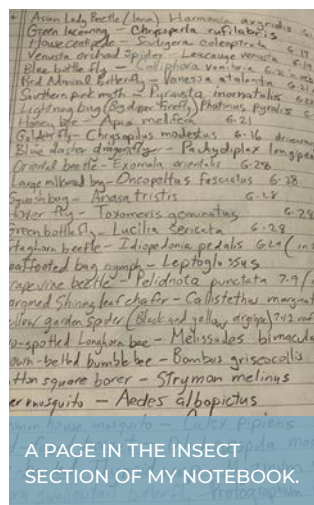 Asian Lady Beetle (larva) Harmonia axyridis
Green lacewing - Chrysoperla rufilabris
House centipede - Scutigera coleoptrata 6.19
Venusta orchard spider - Leucauge venusta 6.19
Blue bottle fly - Calliphora vomitoria
Red Admiral Butterfly - Vanessa atalanta 6.21
Southern pink moth - Pyrausta inornatalis
Lightning bug (Big dipper firefly) Photinus pyralis
Honey bee - Apis melifera 6.21
Golden fly - Chrysopilus modestus 6.16
Blue dasher dragonfly - Pachydiplex longipe
Oriental beetle - Exomala orientalis 6.28
Large milkweed bug - Oncopeltus fasciatus 6.28
Squash bug - Anasa tristis 6.28
fly - Toxomerus geminatus 6.28
Green bottle fly - Lucilia sericata 6.29
taghorn beetle - Idiopedonia pedalis 6.29 (in
eaf footed bug nymph - Leptoglossus
rapevine beetle - Pelidnota punctata 7.9 (
Shining leaf chafer - Callistethus marginat
ellow garden spider (black and yellow argiope) 7.12
wo-spotted Longhorn bee - Melissodes bimacula
own-belted bumble bee - Bombus griseocollis
tton square borer - Strymon melinus
er mosquito - Aedes albopictus
house mosquito - Culex pipiens
A PAGE IN THE INSECT
SECTION OF MY NOTEBOOK.